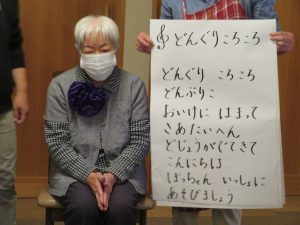 𝄞 どんぐりころころ
どんぐり ころころ
どんぶりこ
おいけに はまって
さあたいへん
どじょうがでてきて
こんにちは
ぼっちゃん いっしょに
あそびましょう